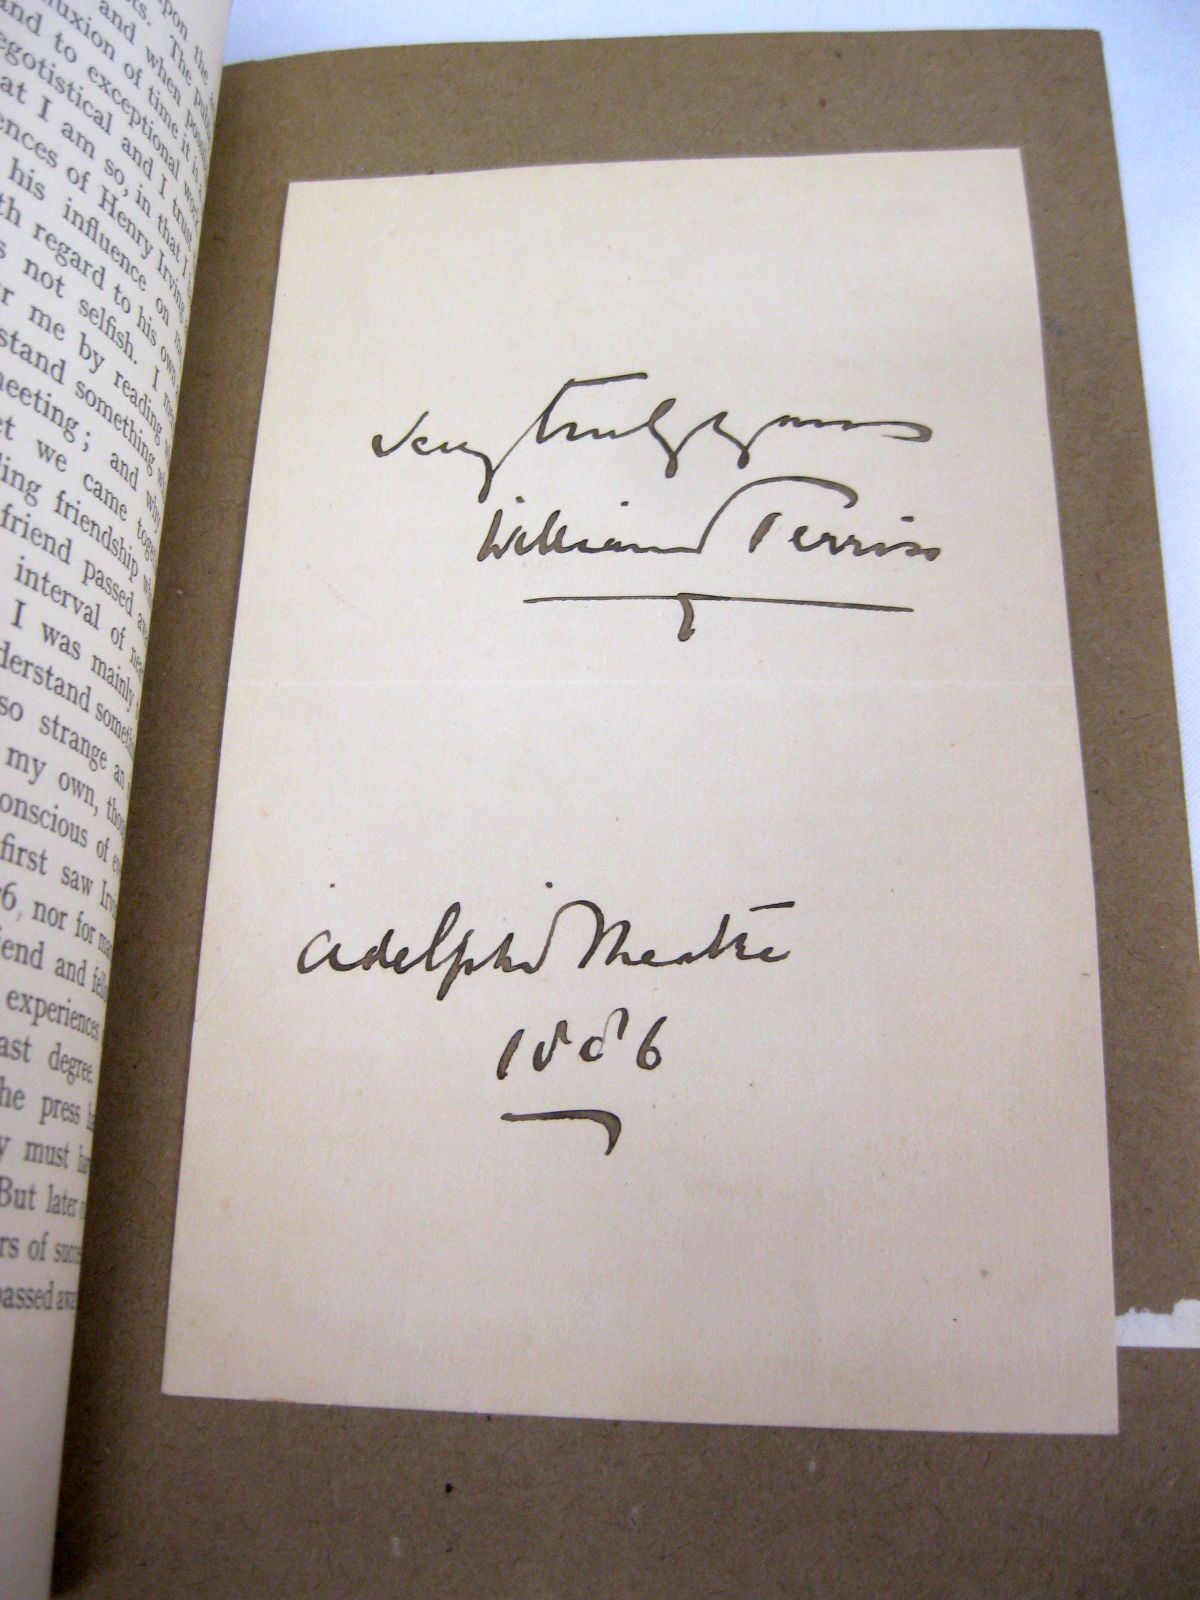 upon the
ts. The publ
and when possibl
luxion of time it is a
and to exceptional work
egotistical and I trust
at I am so, in that I
ences of Henry Irving
his influence on me
th regard to his own
s not selfish. I me
r me by reading
stand something
meeting; and why
et we came toge
ding friendship
friend passed awa
interval of nea
I was mainly
derstand someth
so strange an
my own, thou
onscious of
first saw Irv
6, nor for ma
iend and fell
experiences
ast degree.
he press
y must ha
But later
rs of succe
passed awa
Very truly yours
William Terriss
Adelphi Theatre
1886